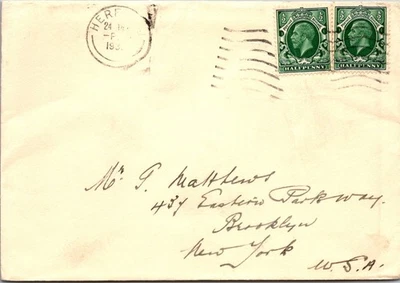 24
193
HALFPENNY HALFPENNY
Mr. P. Matthews
437 Eastern Parkway.
Brooklyn
New York
U.S.A.